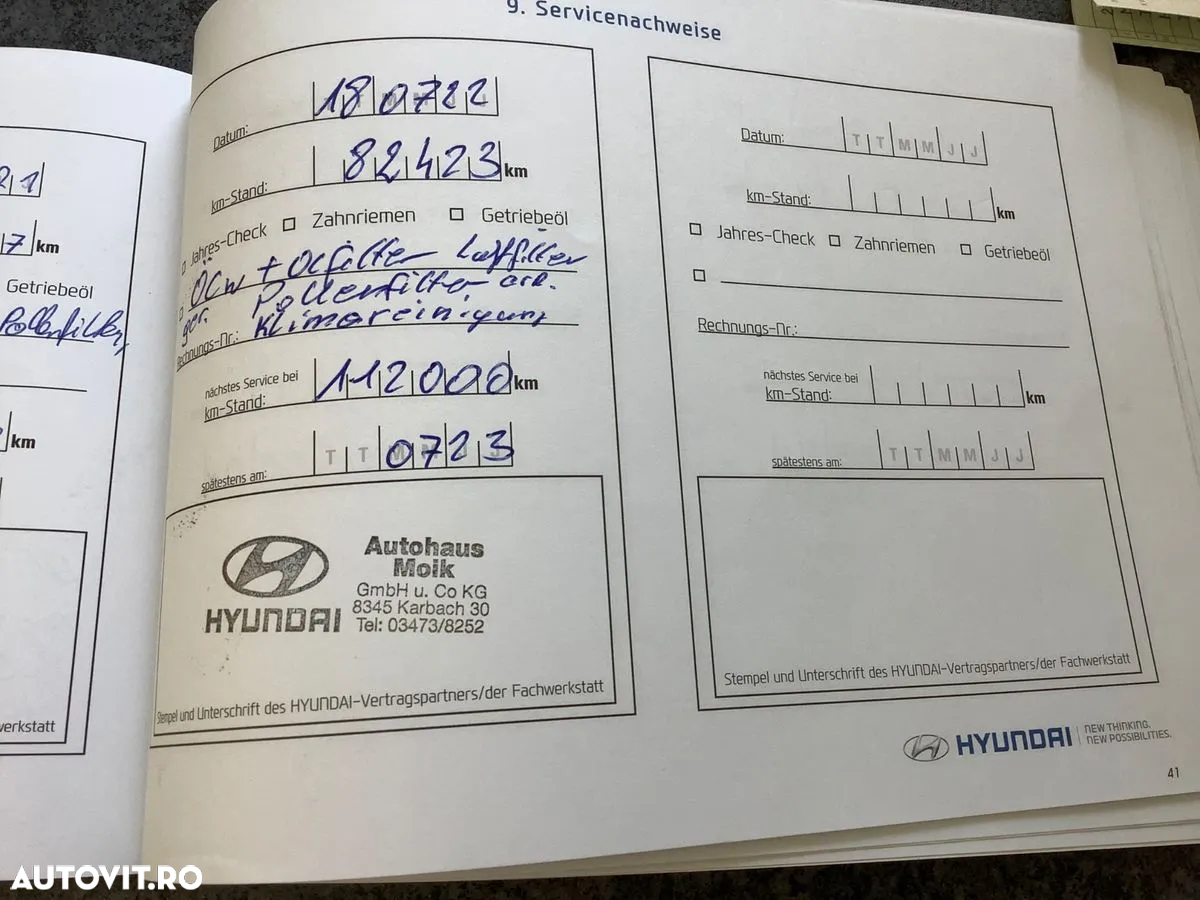 9. Servicenachweise
21
7 km
Getriebeöl
Pollenfilter,
km
werkstatt
Datum: 180722
km-Stand: 82423 km
Jahres-Check Zahnriemen Getriebeöl
ÖCW + Ölfilter Luftfilter
ger. Pollenfilter
Rechnungs-Nr.: Klimareinigung
nächstes Service bei
km-Stand: 112000 km
spätestens am: T T 0723
HYUNDAI
Autohaus
Moik
GmbH u. Co KG
8345 Karbach 30
Tel: 03473/8252
Stempel und Unterschrift des HYUNDAI-Vertragspartners/der Fachwerkstatt
Datum: T T M M J J
km-Stand: km
Jahres-Check Zahnriemen Getriebeöl
Rechnungs-Nr.:
nächstes Service bei
km-Stand: km
spätestens am: T T M M J J
Stempel und Unterschrift des HYUNDAI-Vertragspartners/der Fachwerkstatt
HYUNDAI NEW THINKING.
NEW POSSIBILITIES.
41
AUTOVIT.RO